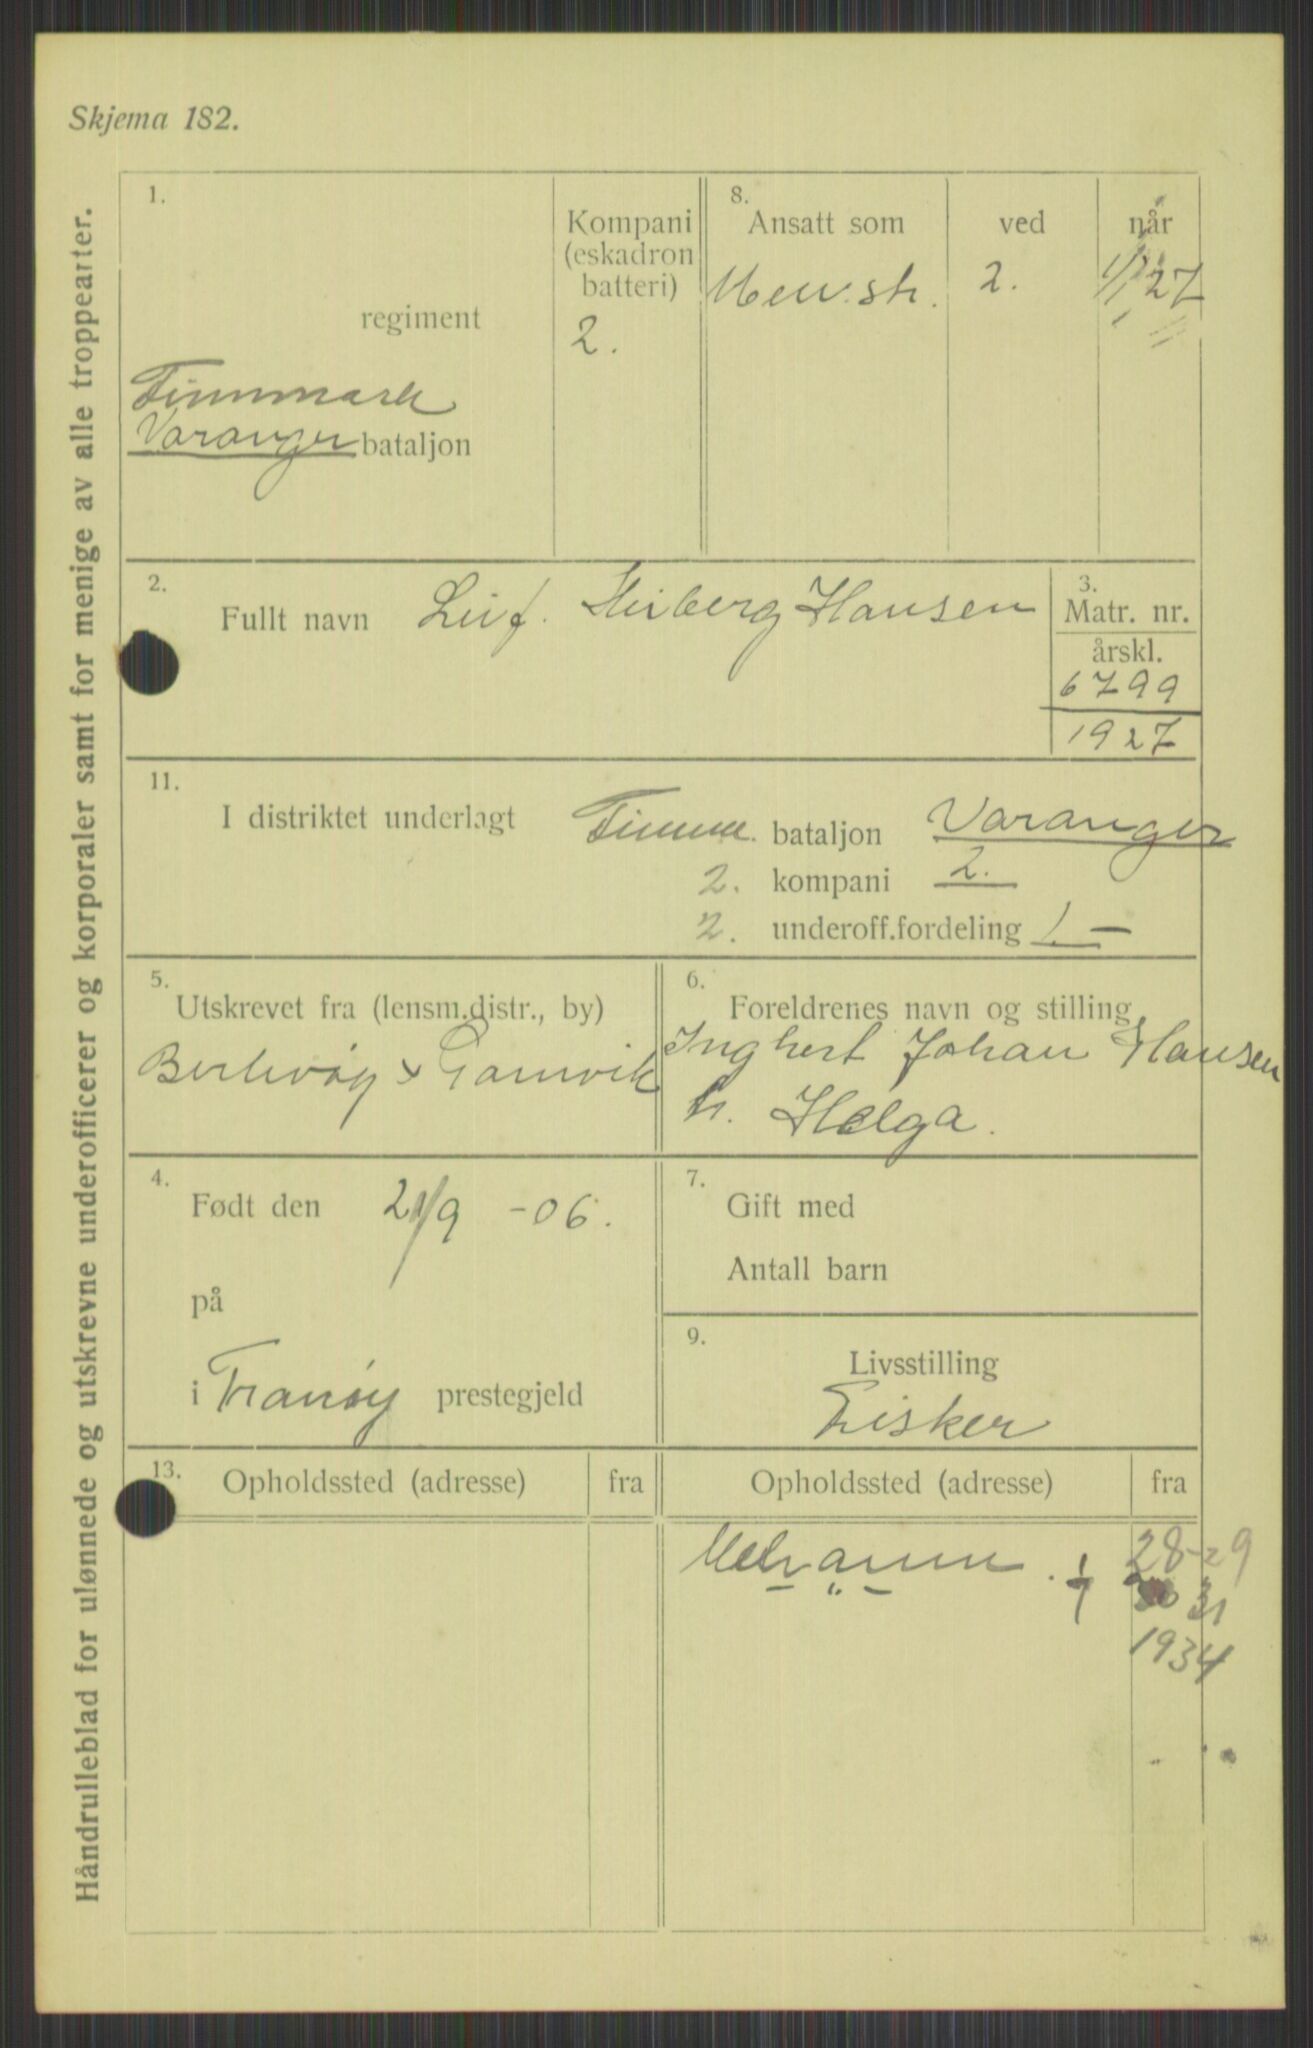 Skjema 182.
Håndrulleblad for ulønnede og utskrevne underofficerer og korporaler samt for menige av alle troppearter.
1.
regiment
Finnmark
Varanger bataljon
Kompani
(eskadron
batteri)
2.
8.
Ansatt som
ved
når
2.
1/1 27
2.
Fullt navn Leif. Heiberg Hansen
3.
Matr. nr.
årskl.
6799
1927
11.
I distriktet underlagt Finnm. bataljon Varanger
2. kompani 2.
2. underoff.fordeling 1 -
5.
Utskrevet fra (lensm.distr., by)
Berlevåg & Gamvik
6.
Foreldrenes navn og stilling
Inghert Johan Hansen
h. Helga.
4.
Født den 21/9 -06.
på
i Tranøy prestegjeld
7.
Gift med
Antall barn
9.
Livsstilling
Fisker
13.
Opholdssted (adresse)
fra
Opholdssted (adresse)
fra
Mehamn
28-29
31
1934